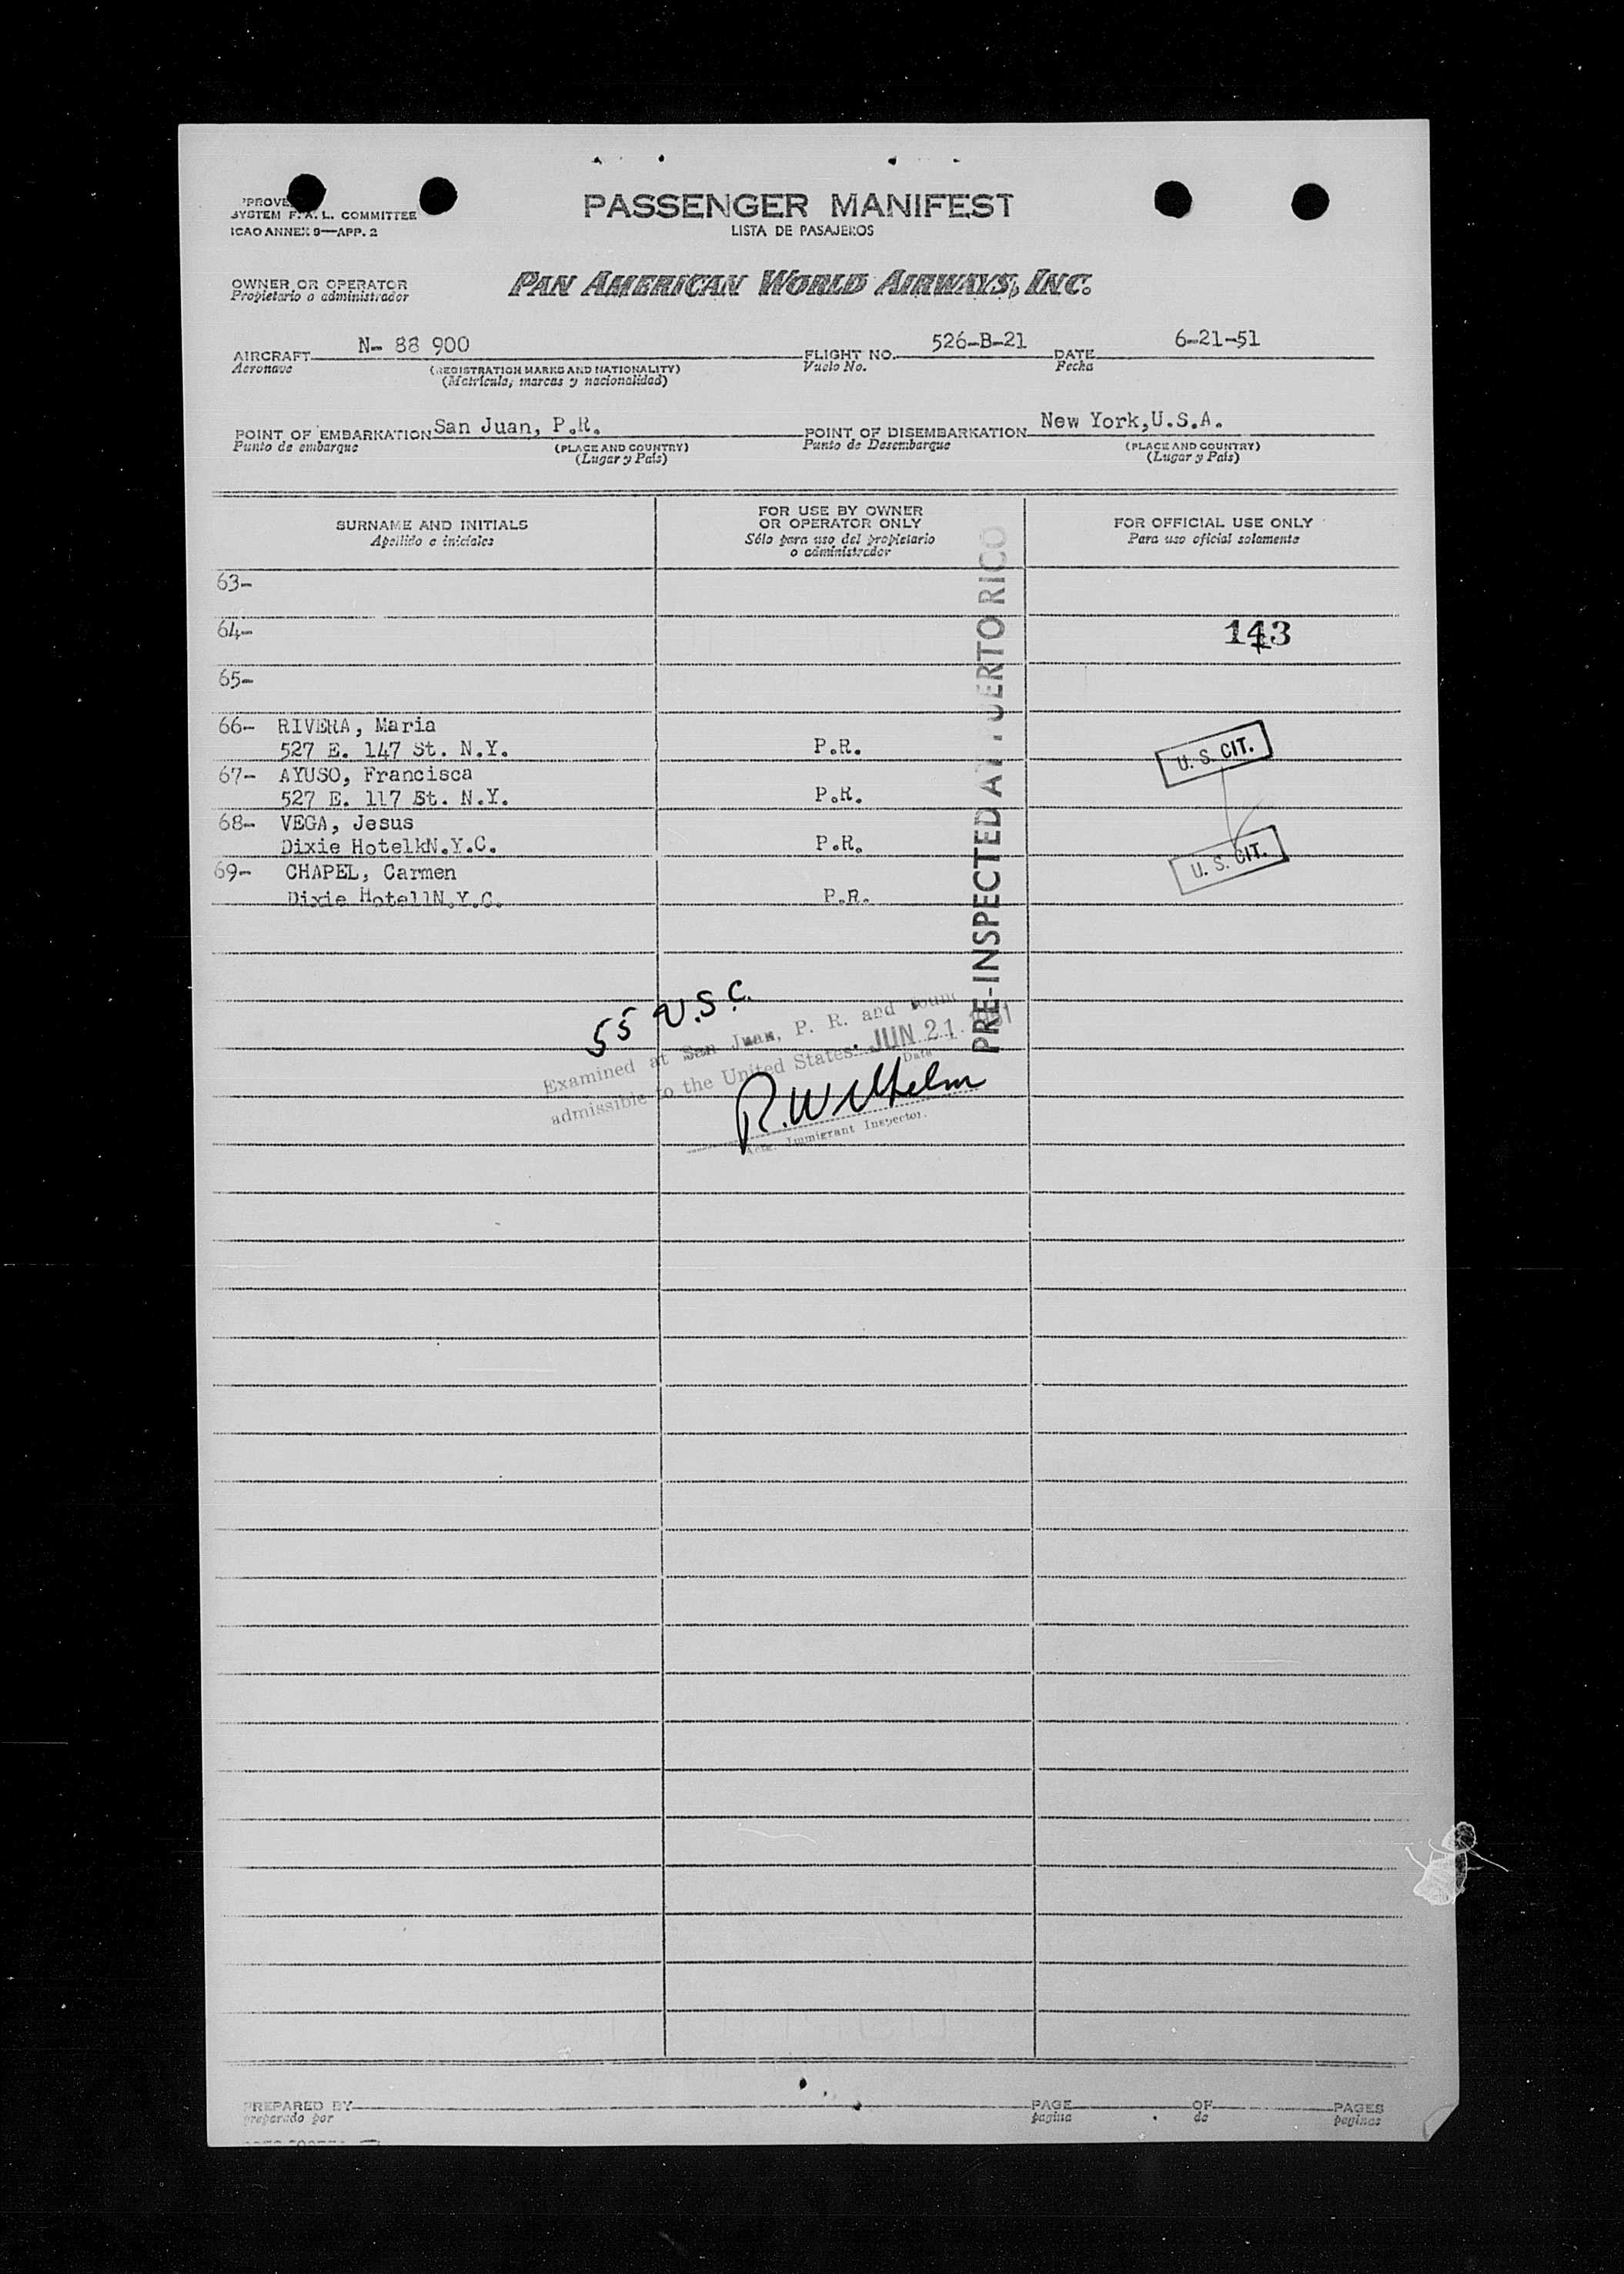 SYSTEM F. A. L. COMMITTEE
ICAO ANNEX 9—APP. 2
PASSENGER MANIFEST
LISTA DE PASAJEROS
OWNER OR OPERATOR
Propietario o administrador
PAN AMERICAN WORLD AIRWAYS, INC.
AIRCRAFT N- 88 900
Aeronave
(REGISTRATION MARKS AND NATIONALITY)
(Matrícula, marcas y nacionalidad)
FLIGHT NO. 526-B-21
Vuelo No.
DATE 6-21-51
Fecha
POINT OF EMBARKATION San Juan, P.R.
Punto de embarque
(PLACE AND COUNTRY)
(Lugar y País)
POINT OF DISEMBARKATION New York,U.S.A.
Punto de Desembarque
(PLACE AND COUNTRY)
(Lugar y País)
SURNAME AND INITIALS
Apellido e iniciales
FOR USE BY OWNER
OR OPERATOR ONLY
Sólo para uso del propietario
o administrador
FOR OFFICIAL USE ONLY
Para uso oficial solamente
63-
64- 143
65-
66- RIVERA, Maria
527 E. 147 St. N.Y. P.R. U. S. CIT.
67- AYUSO, Francisca
527 E. 117 St. N.Y. P.R.
68- VEGA, Jesus
Dixie HotelkN.Y.C. P.R. U. S. CIT.
69- CHAPEL, Carmen
Dixie HotellN.Y.C. P.R.
PRE-INSPECTED AT PUERTO RICO
55 U.S.C.
Examined at San Juan, P. R. and found
admissible to the United States. JUN 21 1951
Date
R. Wilhelm
Actg. Immigrant Inspector.
PREPARED BY
preparado por
PAGE OF PAGES
pagina de paginas